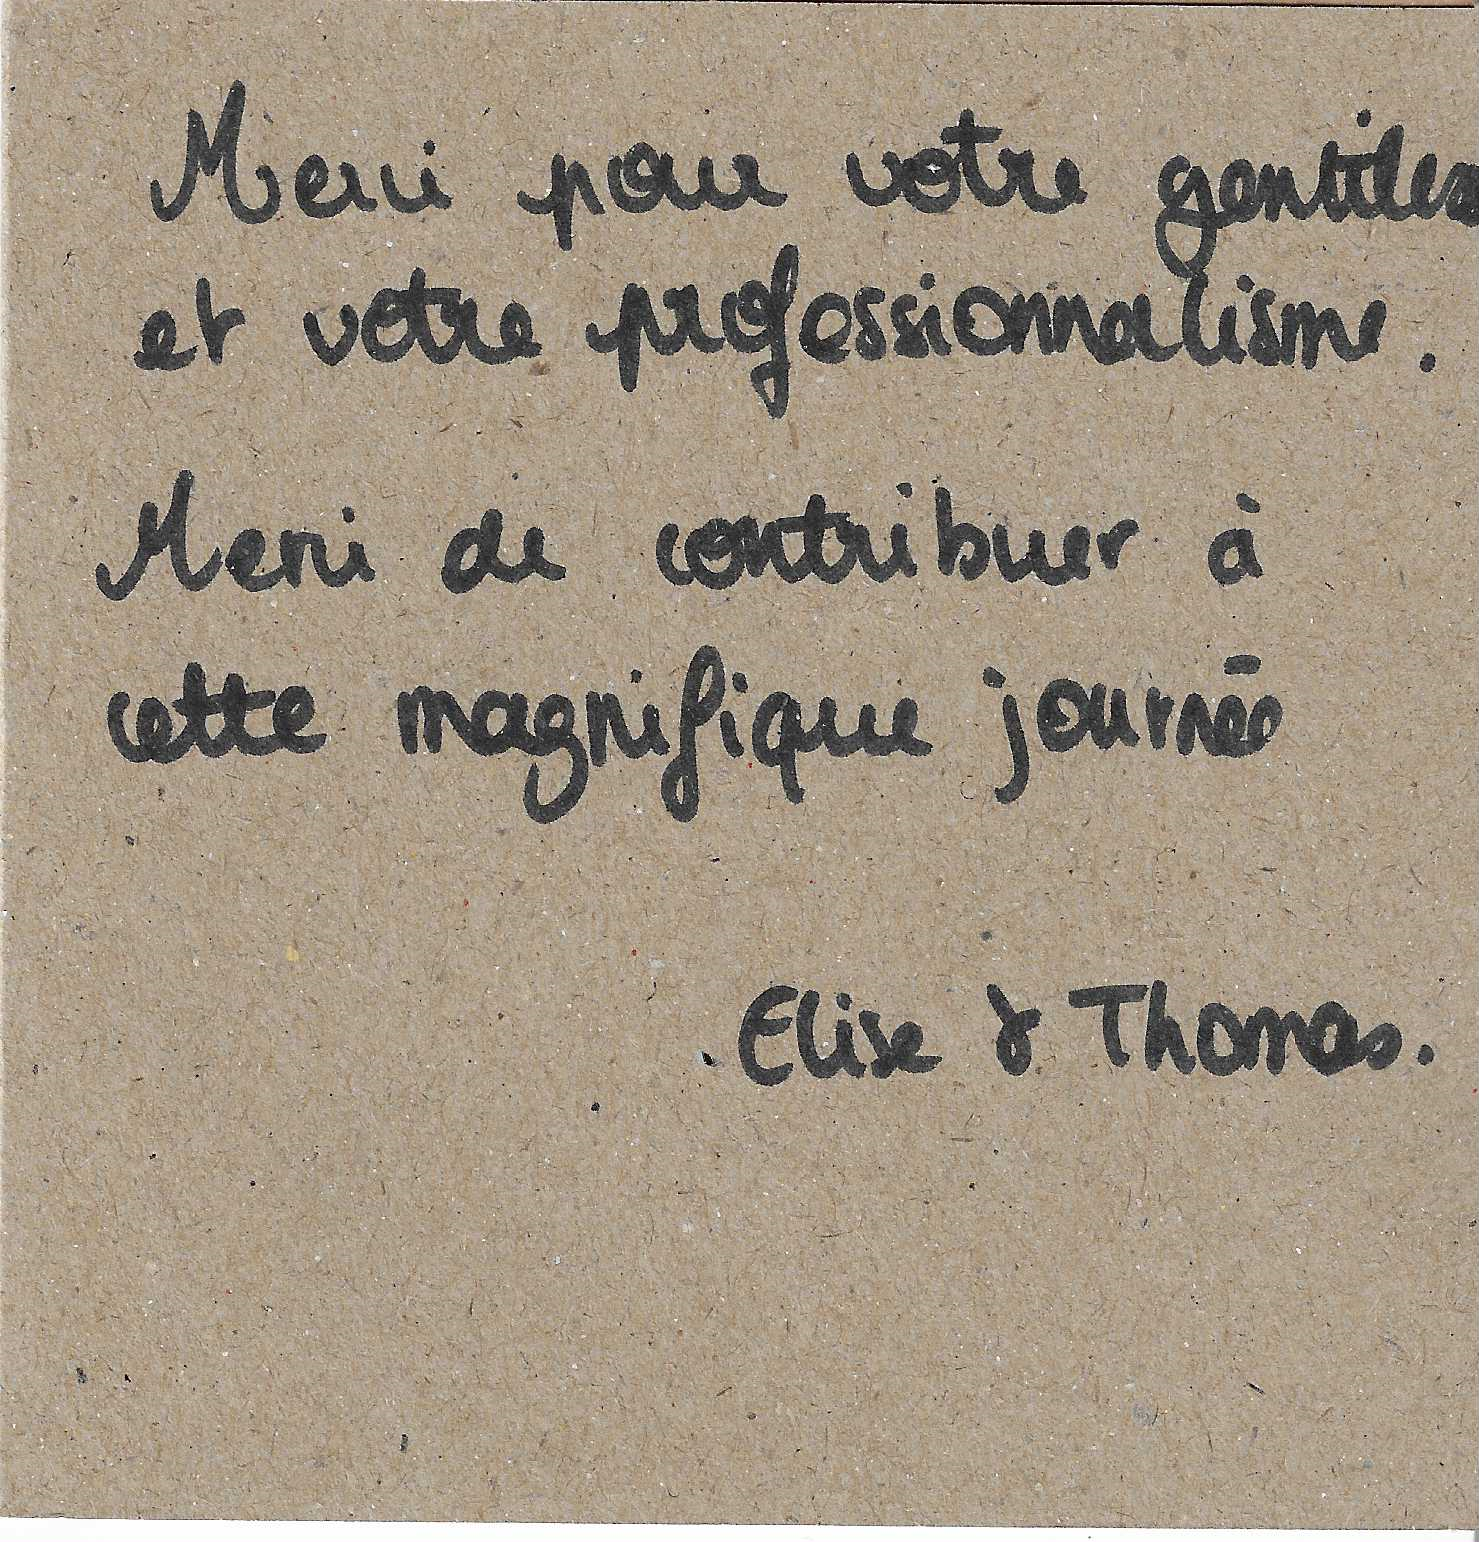 Merci pour votre gentilless
et votre professionnalisme.
Merci de contribuer à
cette magnifique journée
Elise & Thomas.